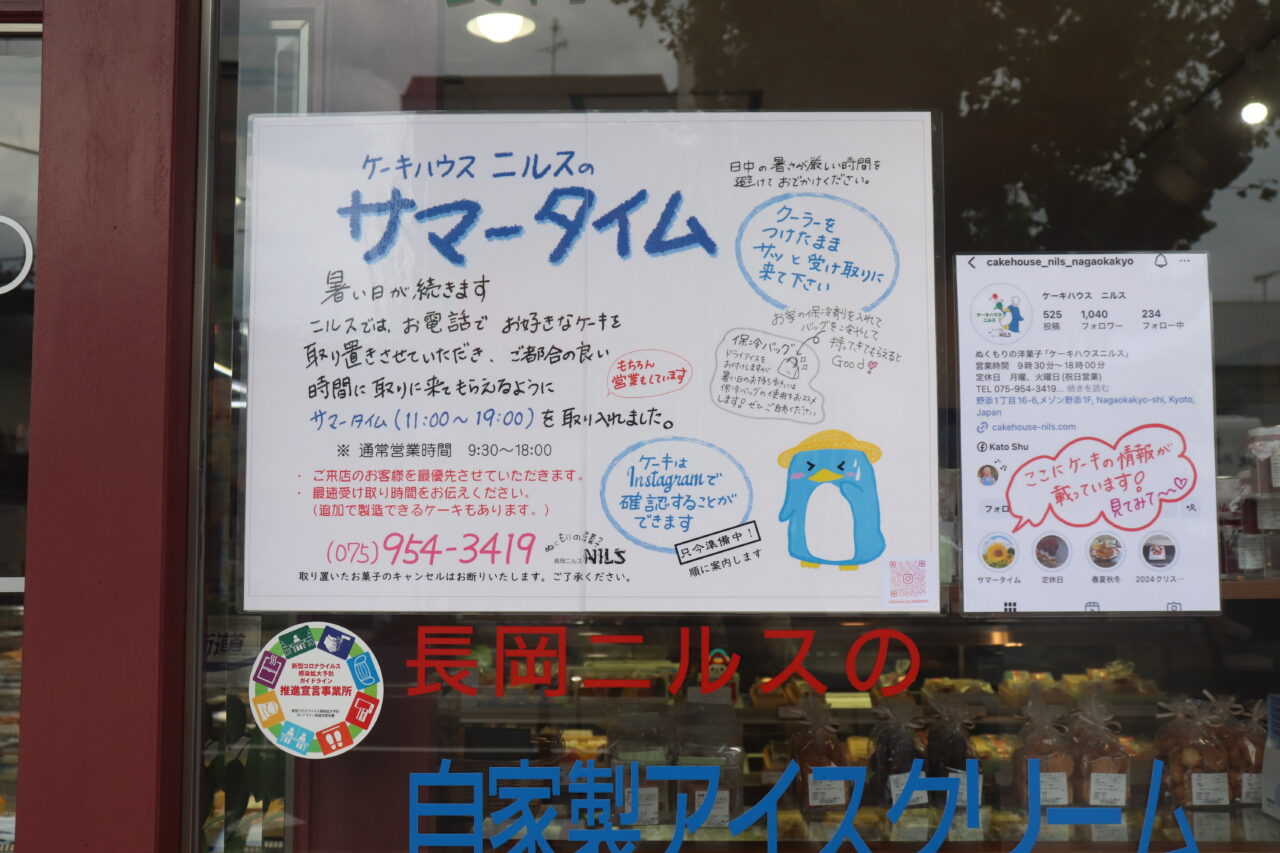 ケーキハウス ニルスの
サマータイム
暑い日が続きます
ニルスでは、お電話で お好きなケーキを
取り置きさせていただき、ご都合の良い
時間に取りに来てもらえるように
サマータイム(11:00〜19:00)を取り入れました。
もちろん
営業もしています
※ 通常営業時間 9:30〜18:00
・ご来店のお客様を最優先させていただきます。
・最速受け取り時間をお伝えください。
(追加で製造できるケーキもあります。)
(075)954-3419
ぬくもりの洋菓子
長岡ニルス NILS
取り置いたお菓子のキャンセルはお断りいたします。ご了承ください。
日中の暑さが厳しい時間を
避けておでかけください。
クーラーを
つけたまま
サッと受け取りに
来て下さい
お家の保冷剤を入れて
バッグを冷やして
持ってきてもらえると
Good
保冷バッグ
ドライアイスを
お付けしますが
暑い日のお持ち歩きには
保冷バッグの使用をおススメ
します!ぜひご自参ください
ケーキは
Instagramで
確認することが
できます
只今準備中!
順に案内します
cakehouse_nils_nagaokakyo
ケーキハウス ニルス
525 1,040 234
投稿 フォロワー フォロー中
ケーキハウス
ニルス
NILS
ぬくもりの洋菓子「ケーキハウスニルス」
営業時間 9時30分〜18時00分
定休日 月曜、火曜日(祝日営業)
TEL 075-954-3419... 続きを読む
野添1丁目16-6,メゾン野添1F, Nagaokakyo-shi, Kyoto,
Japan
cakehouse-nils.com
Kato Shu
ここにケーキの情報が
載っています!
見てみて〜
フォロ
サマータイム 定休日 春夏秋冬 2024クリス…
新型コロナウイルス
感染拡大予防
ガイドライン
推進宣言事業所
長岡ニルスの
自家製アイスクリーム